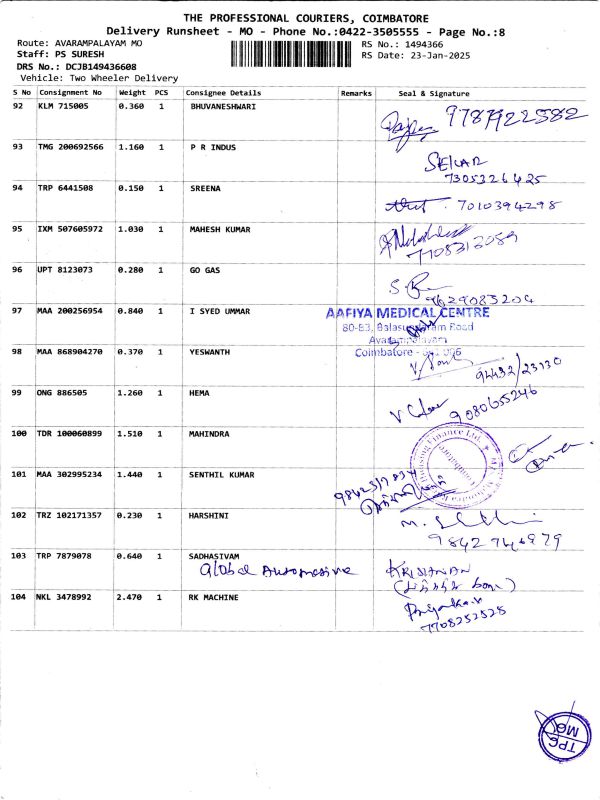 THE PROFESSIONAL COURIERS, COIMBATORE
Delivery Runsheet - MO - Phone No.:0422-3505555 - Page No.:8
Route: AVARAMPALAYAM MO
RS No.: 1494366
Staff: PS SURESH
RS Date: 23-Jan-2025
DRS No.: DCJB149436608
Vehicle: Two Wheeler Delivery
S No Consignment No Weight PCS Consignee Details Remarks Seal & Signature
92 KLM 715005 0.360 1 BHUVANESHWARI
9787922582
93 TMG 200692566 1.160 1 P R INDUS
SEKAR
7305326425
94 TRP 6441508 0.150 1 SREENA
7010394298
95 IXM 507605972 1.030 1 MAHESH KUMAR
7708313089
96 UPT 8123073 0.280 1 GO GAS
9629083204
97 MAA 200256954 0.840 1 I SYED UMMAR
AAFIYA MEDICAL CENTRE
80-83, Balasundaram Road
Avarampalayam
Coimbatore - 641 006
98 MAA 868904270 0.370 1 YESWANTH
94432/23130
99 ONG 886505 1.260 1 HEMA
9080655246
100 TDR 100060899 1.510 1 MAHINDRA
Housing Finance Ltd.
101 MAA 302995234 1.440 1 SENTHIL KUMAR
102 TRZ 102171357 0.230 1 HARSHINI
9842746979
103 TRP 7879078 0.640 1 SADHASIVAM
Global Automotive
KRISHNAN
104 NKL 3478992 2.470 1 RK MACHINE
Priyanka.v
7708252528
TPC
MO